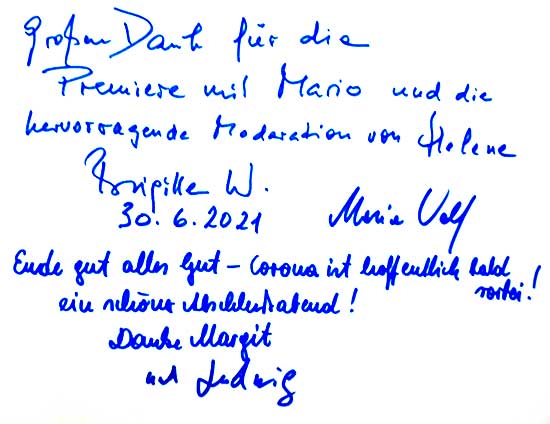 Großen Dank für die
Premiere mit Mario und die
hervorragende Moderation von Helene
Brigitte W.
30.6.2021 Maria
Ende gut alles Gut – Corona ist hoffentlich bald
vorbei!
ein schöner Abschlußabend!
Danke Margit
und Ludwig